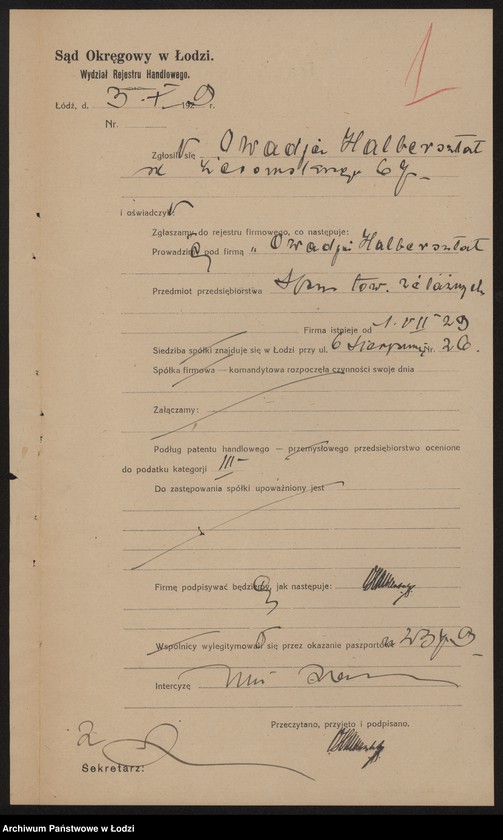 1
Sąd Okręgowy w Łodzi.
Wydział Rejestru Handlowego.
Łódź, d. 3 X 1929 r.
Nr.
Zgłosił się Owadja Halbersztat
67
i oświadczył:
Zgłaszamy do rejestru firmowego, co następuje:
Prowadzę pod firmą „Owadja Halbersztat
Przedmiot przedsiębiorstwa tow. żelaznych
Firma istnieje od 1. VII 29
Siedziba spółki znajduje się w Łodzi przy ul. 6 Sierpnia Nr. 26.
Spółka firmowa — komandytowa rozpoczęła czynności swoje dnia
Załączamy:
Podług patentu handlowego — przemysłowego przedsiębiorstwo ocenione
do podatku kategorji III
Do zastępowania spółki upoważniony jest
Firmę podpisywać będziemy jak następuje:
Wspólnicy wylegitymowali się przez okazanie paszportów
Intercyzę
Przeczytano, przyjęto i podpisano.
2
Sekretarz:
Archiwum Państwowe w Łodzi